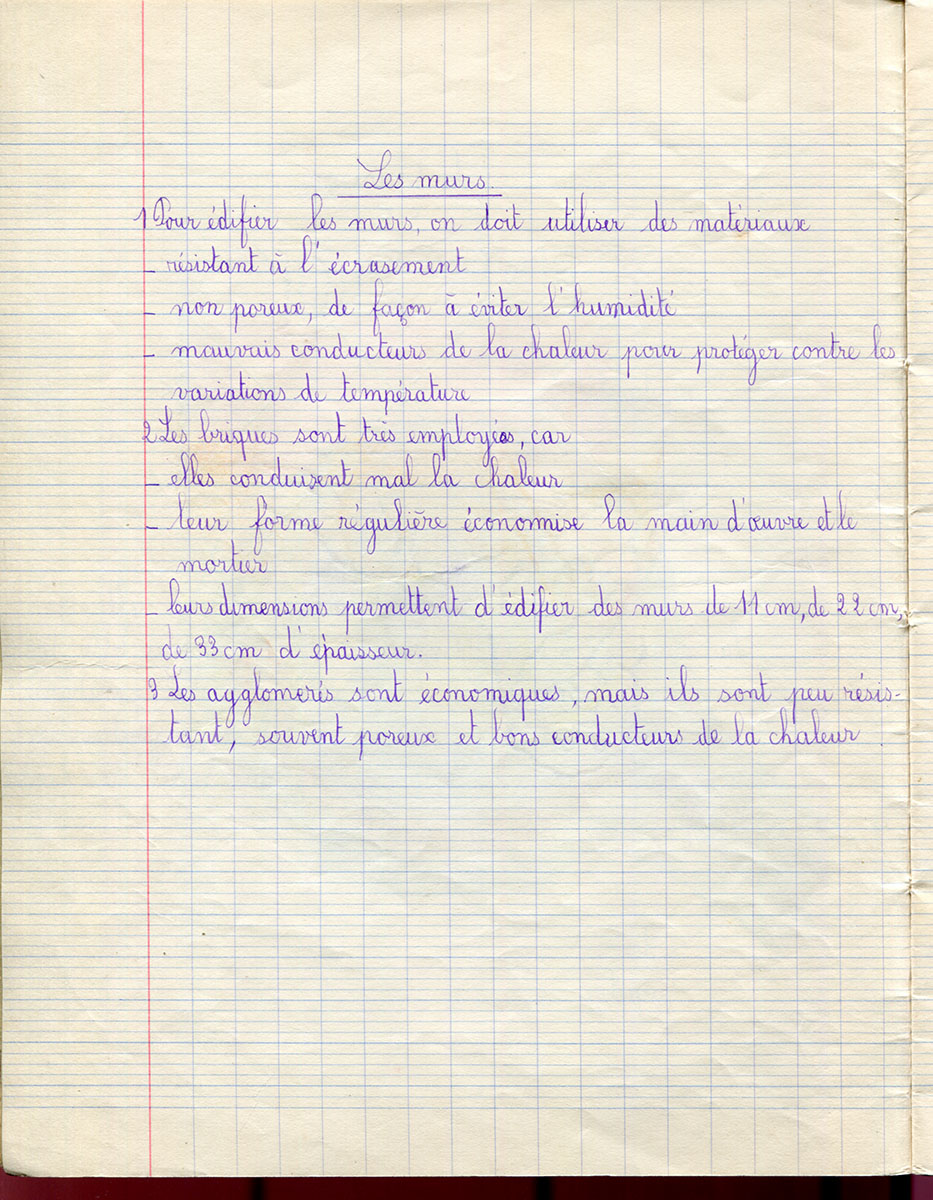 Les murs
1 Pour édifier les murs, on doit utiliser des matériaux
– résistant à l'écrasement
– non poreux, de façon à éviter l'humidité
– mauvais conducteurs de la chaleur pour protéger contre les
variations de température
2 Les briques sont très employées, car
– elles conduisent mal la chaleur
– leur forme régulière économise la main d'œuvre et le
mortier
– leurs dimensions permettent d'édifier des murs de 11 cm, de 22 cm,
de 33 cm d'épaisseur.
3 Les agglomérés sont économiques, mais ils sont peu résis-
tant, souvent poreux et bons conducteurs de la chaleur.